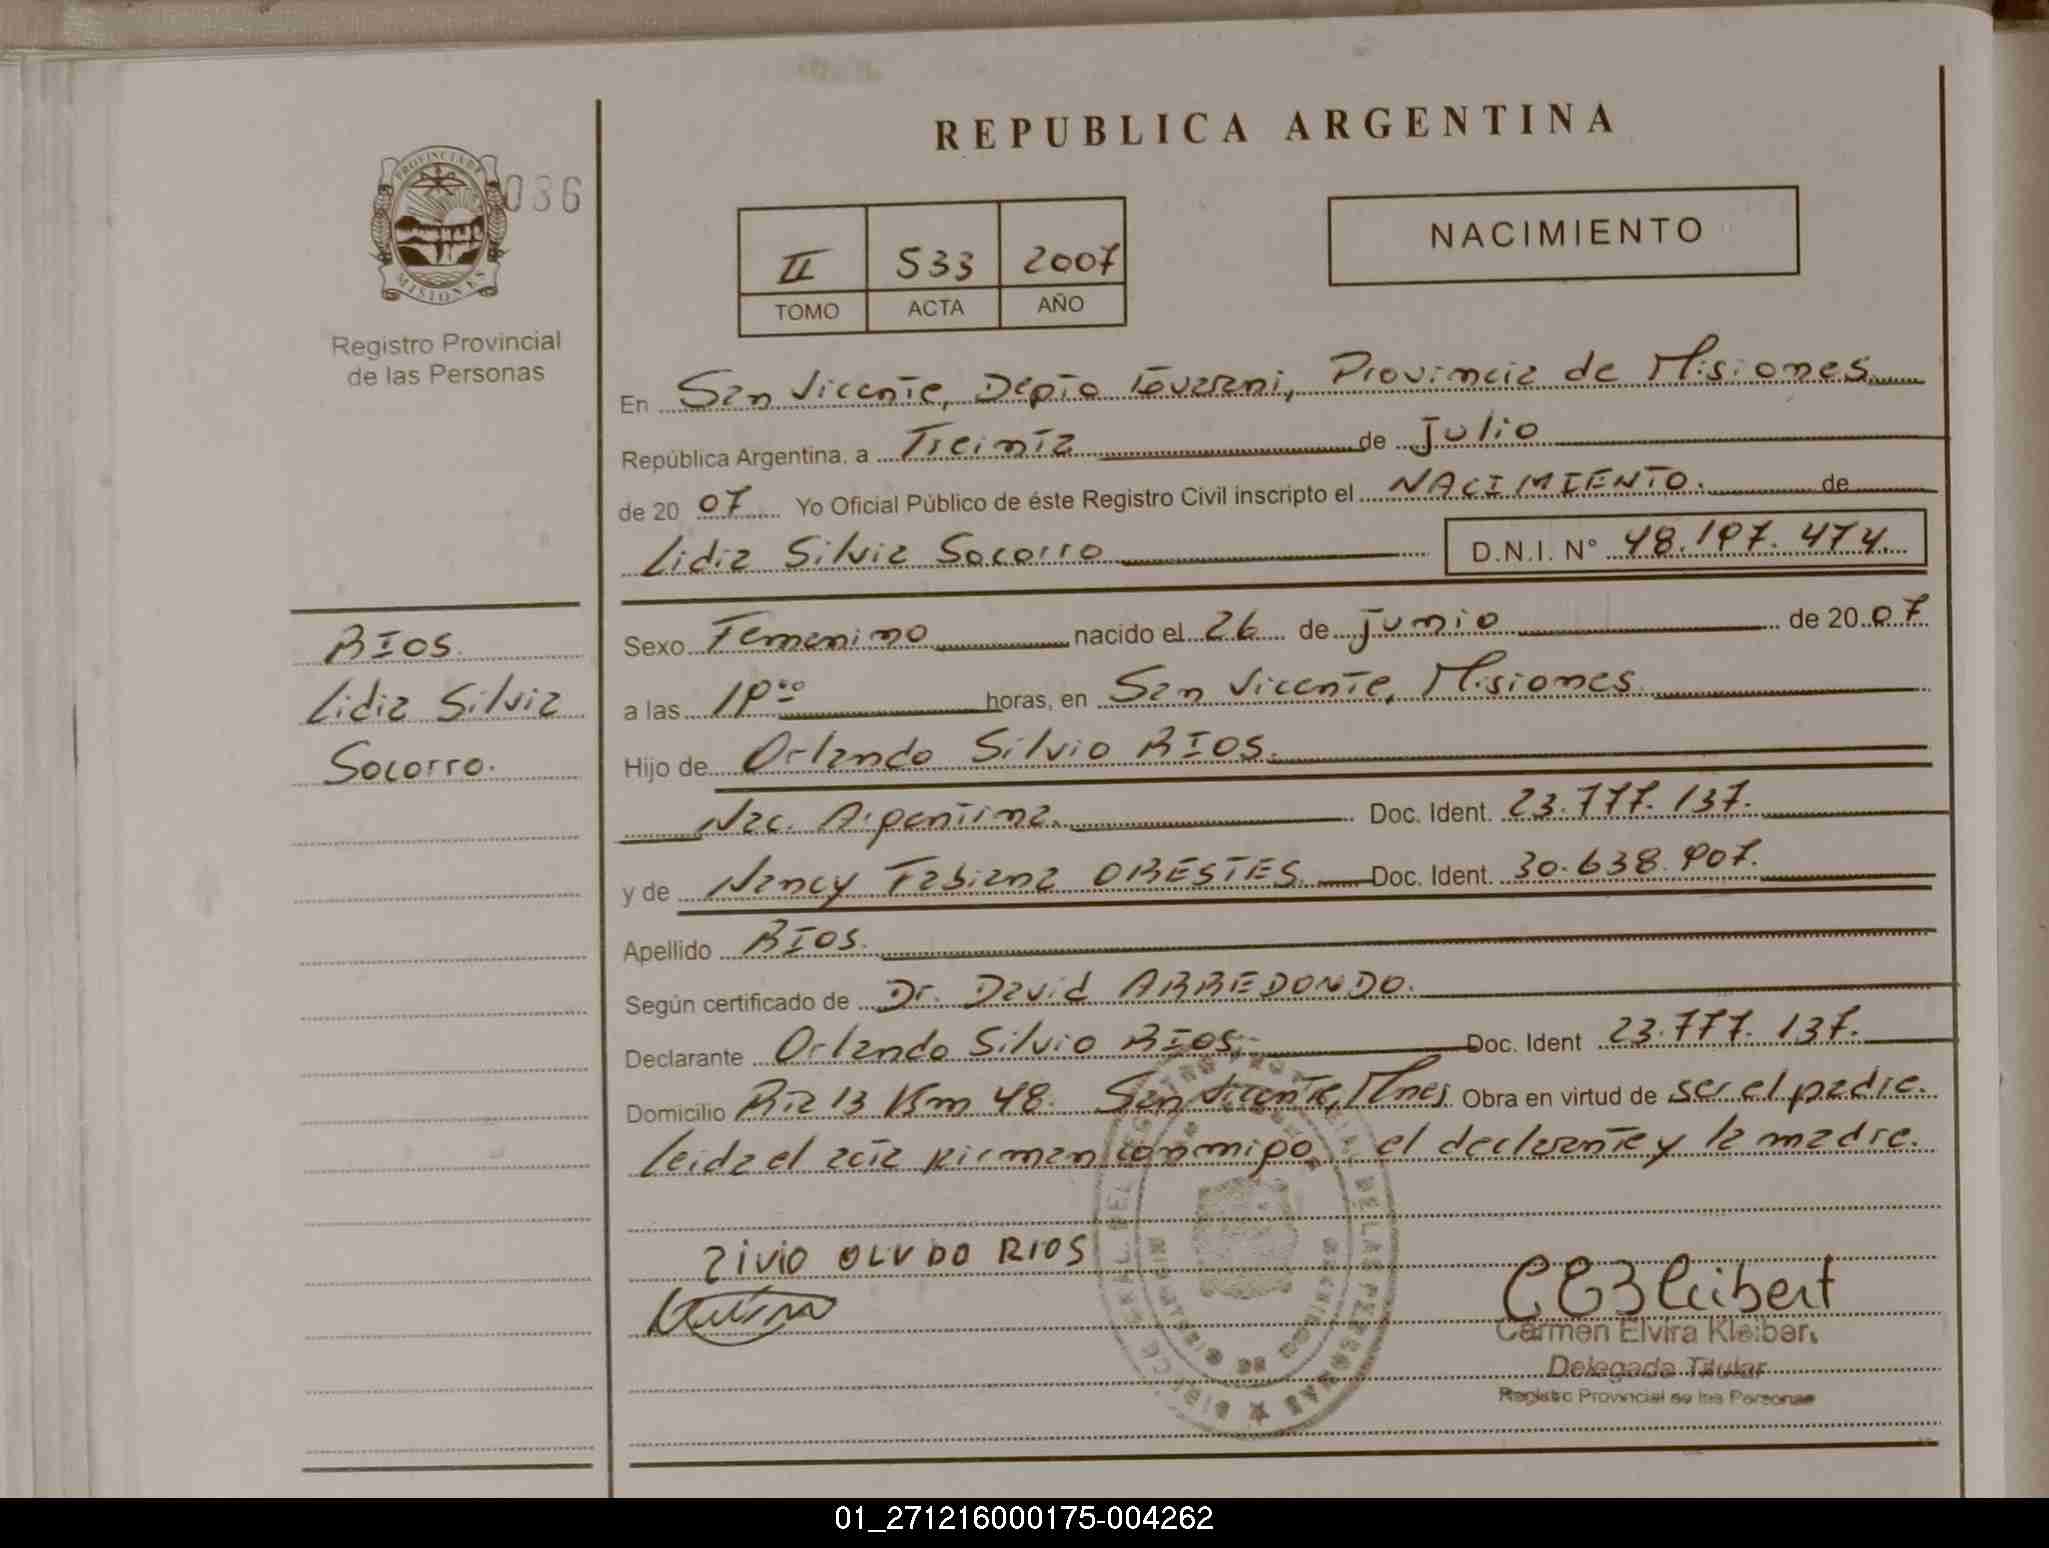 REPUBLICA ARGENTINA
036
PROVINCIA DE
MISIONES
Registro Provincial
de las Personas
NACIMIENTO
II 533 2007
TOMO ACTA AÑO
En San Vicente, Depto Guarani, Provincia de Misiones
República Argentina, a Treinta de Julio
de 20 07 Yo Oficial Público de éste Registro Civil inscripto el NACIMIENTO. de
Lidia Silvia Socorro D.N.I. N° 48.197.474.
RIOS.
Lidia Silvia
Socorro.
Sexo Femenino nacido el 26 de junio de 20 07
a las 19 00 horas, en San Vicente, Misiones
Hijo de Orlando Silvio RIOS.
Nac. Argentina. Doc. Ident. 23.777.137.
y de Nancy Fabiana ORESTES. Doc. Ident. 30.638.907.
Apellido RIOS.
Según certificado de Dr. David ARREDONDO.
Declarante Orlando Silvio RIOS. Doc. Ident 23.777.137.
Domicilio Rta 13 Km 48. San Vicente, Mnes Obra en virtud de ser el padre.
Leida el acta firman conmigo el declarante y la madre.
ZIVIO OLVDO RIOS
CEKleibert
Carmen Elvira Kleiber
Delegada Titular
Registro Provincial de las Personas
01_271216000175-004262